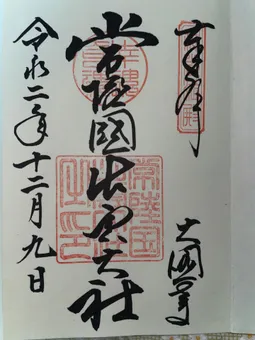 奉拝
大国亨
常陸國出雲大社
常陸国出雲大社之印
令和二年十二月九日